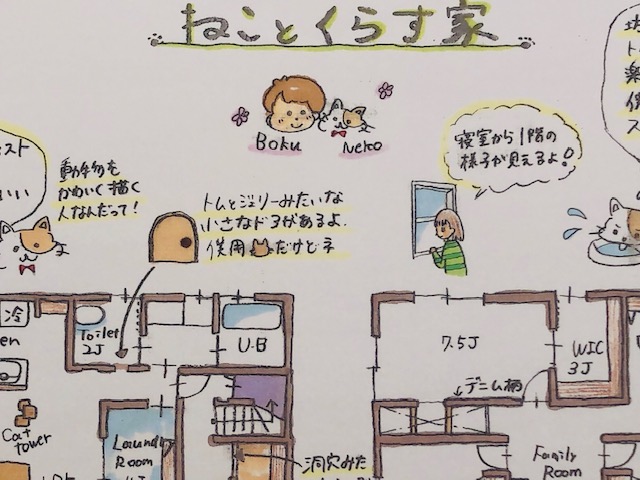 ねことくらす家
Boku
Neko
寝室から1階の
様子が見えるよ!
動物を
かわいく描く
人なんだって!
トムとジェリーみたいな
小さなドアがあるよ.
供用だけどネ
冷
Toilet
2J
U.B
7.5J
WIC
3J
デニム柄
Cat
tower
Laundry
Room
洞穴みた
Family
Room